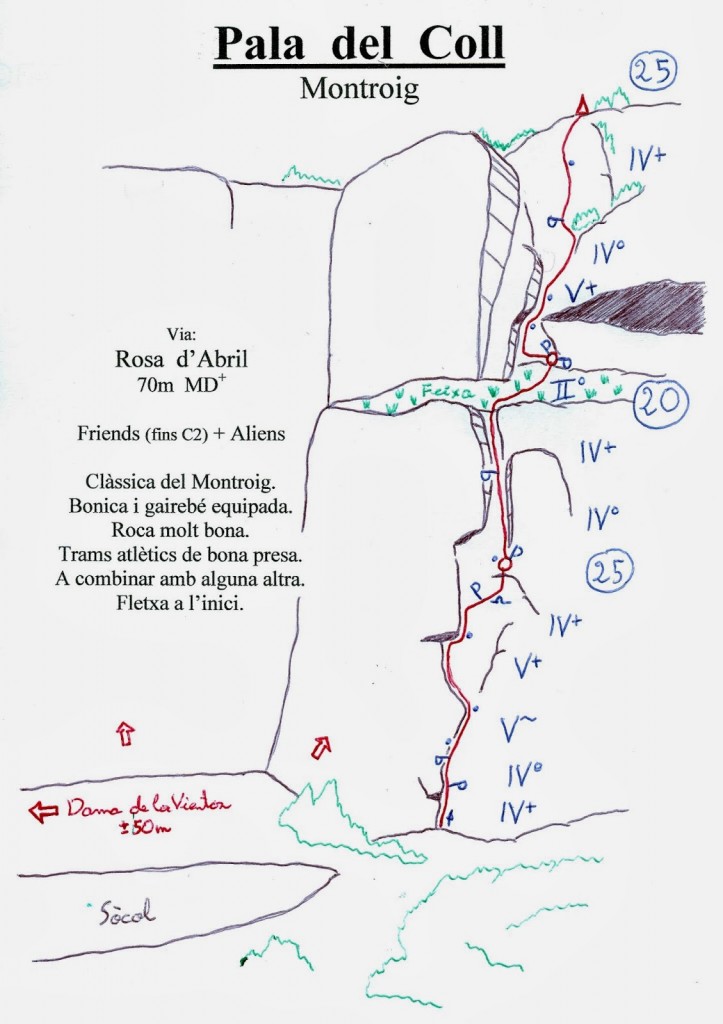 Pala del Coll
Montroig
25
IV+
IVº
V+
Via:
Rosa d'Abril
70m MD+
Friends (fins C2) + Aliens
Clàssica del Montroig.
Bonica i gairebé equipada.
Roca molt bona.
Trams atlètics de bona presa.
A combinar amb alguna altra.
Fletxa a l'inici.
Feixa
IIº
20
IV+
IVº
25
IV+
V+
V~
IVº
IV+
Dama de las Vientos
±50m
Sòcol